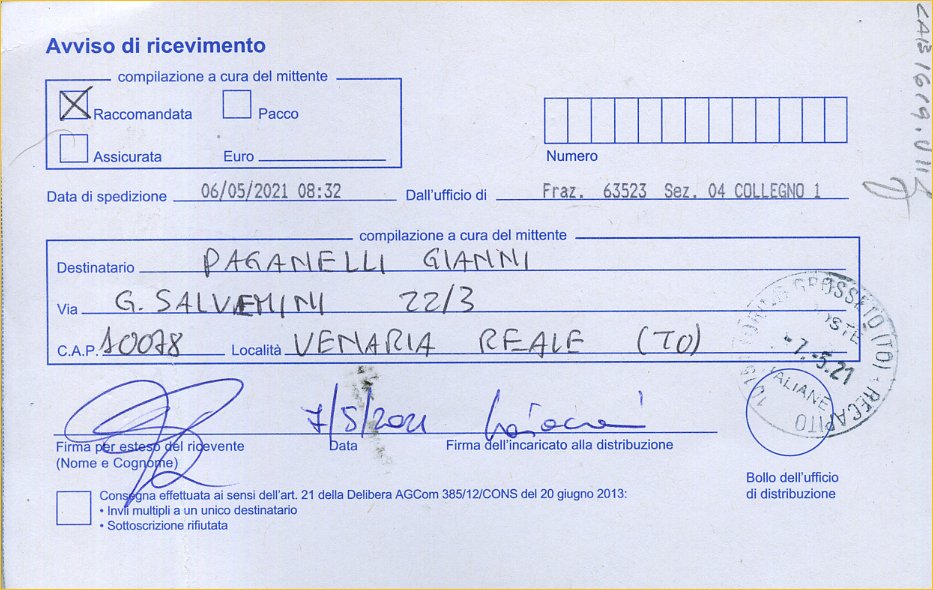 Avviso di ricevimento
compilazione a cura del mittente
Raccomandata
Pacco
Assicurata
Euro
Numero
Data di spedizione 06/05/2021 08:32 Dall'ufficio di Fraz. 63523 Sez. 04 COLLEGNO 1
compilazione a cura del mittente
Destinatario PAGANELLI GIANNI
Via G. SALVEMINI 22/3
C.A.P. 10078 Località VENARIA REALE (TO)
7/5/2021
Firma per esteso del ricevente
(Nome e Cognome)
Data
Firma dell'incaricato alla distribuzione
GROSSETO (TO) - RECAPITO
POSTE
-7.-5.21
ITALIANE
Bollo dell'ufficio
di distribuzione
Consegna effettuata ai sensi dell'art. 21 della Delibera AGCom 385/12/CONS del 20 giugno 2013:
• Invii multipli a un unico destinatario
• Sottoscrizione rifiutata